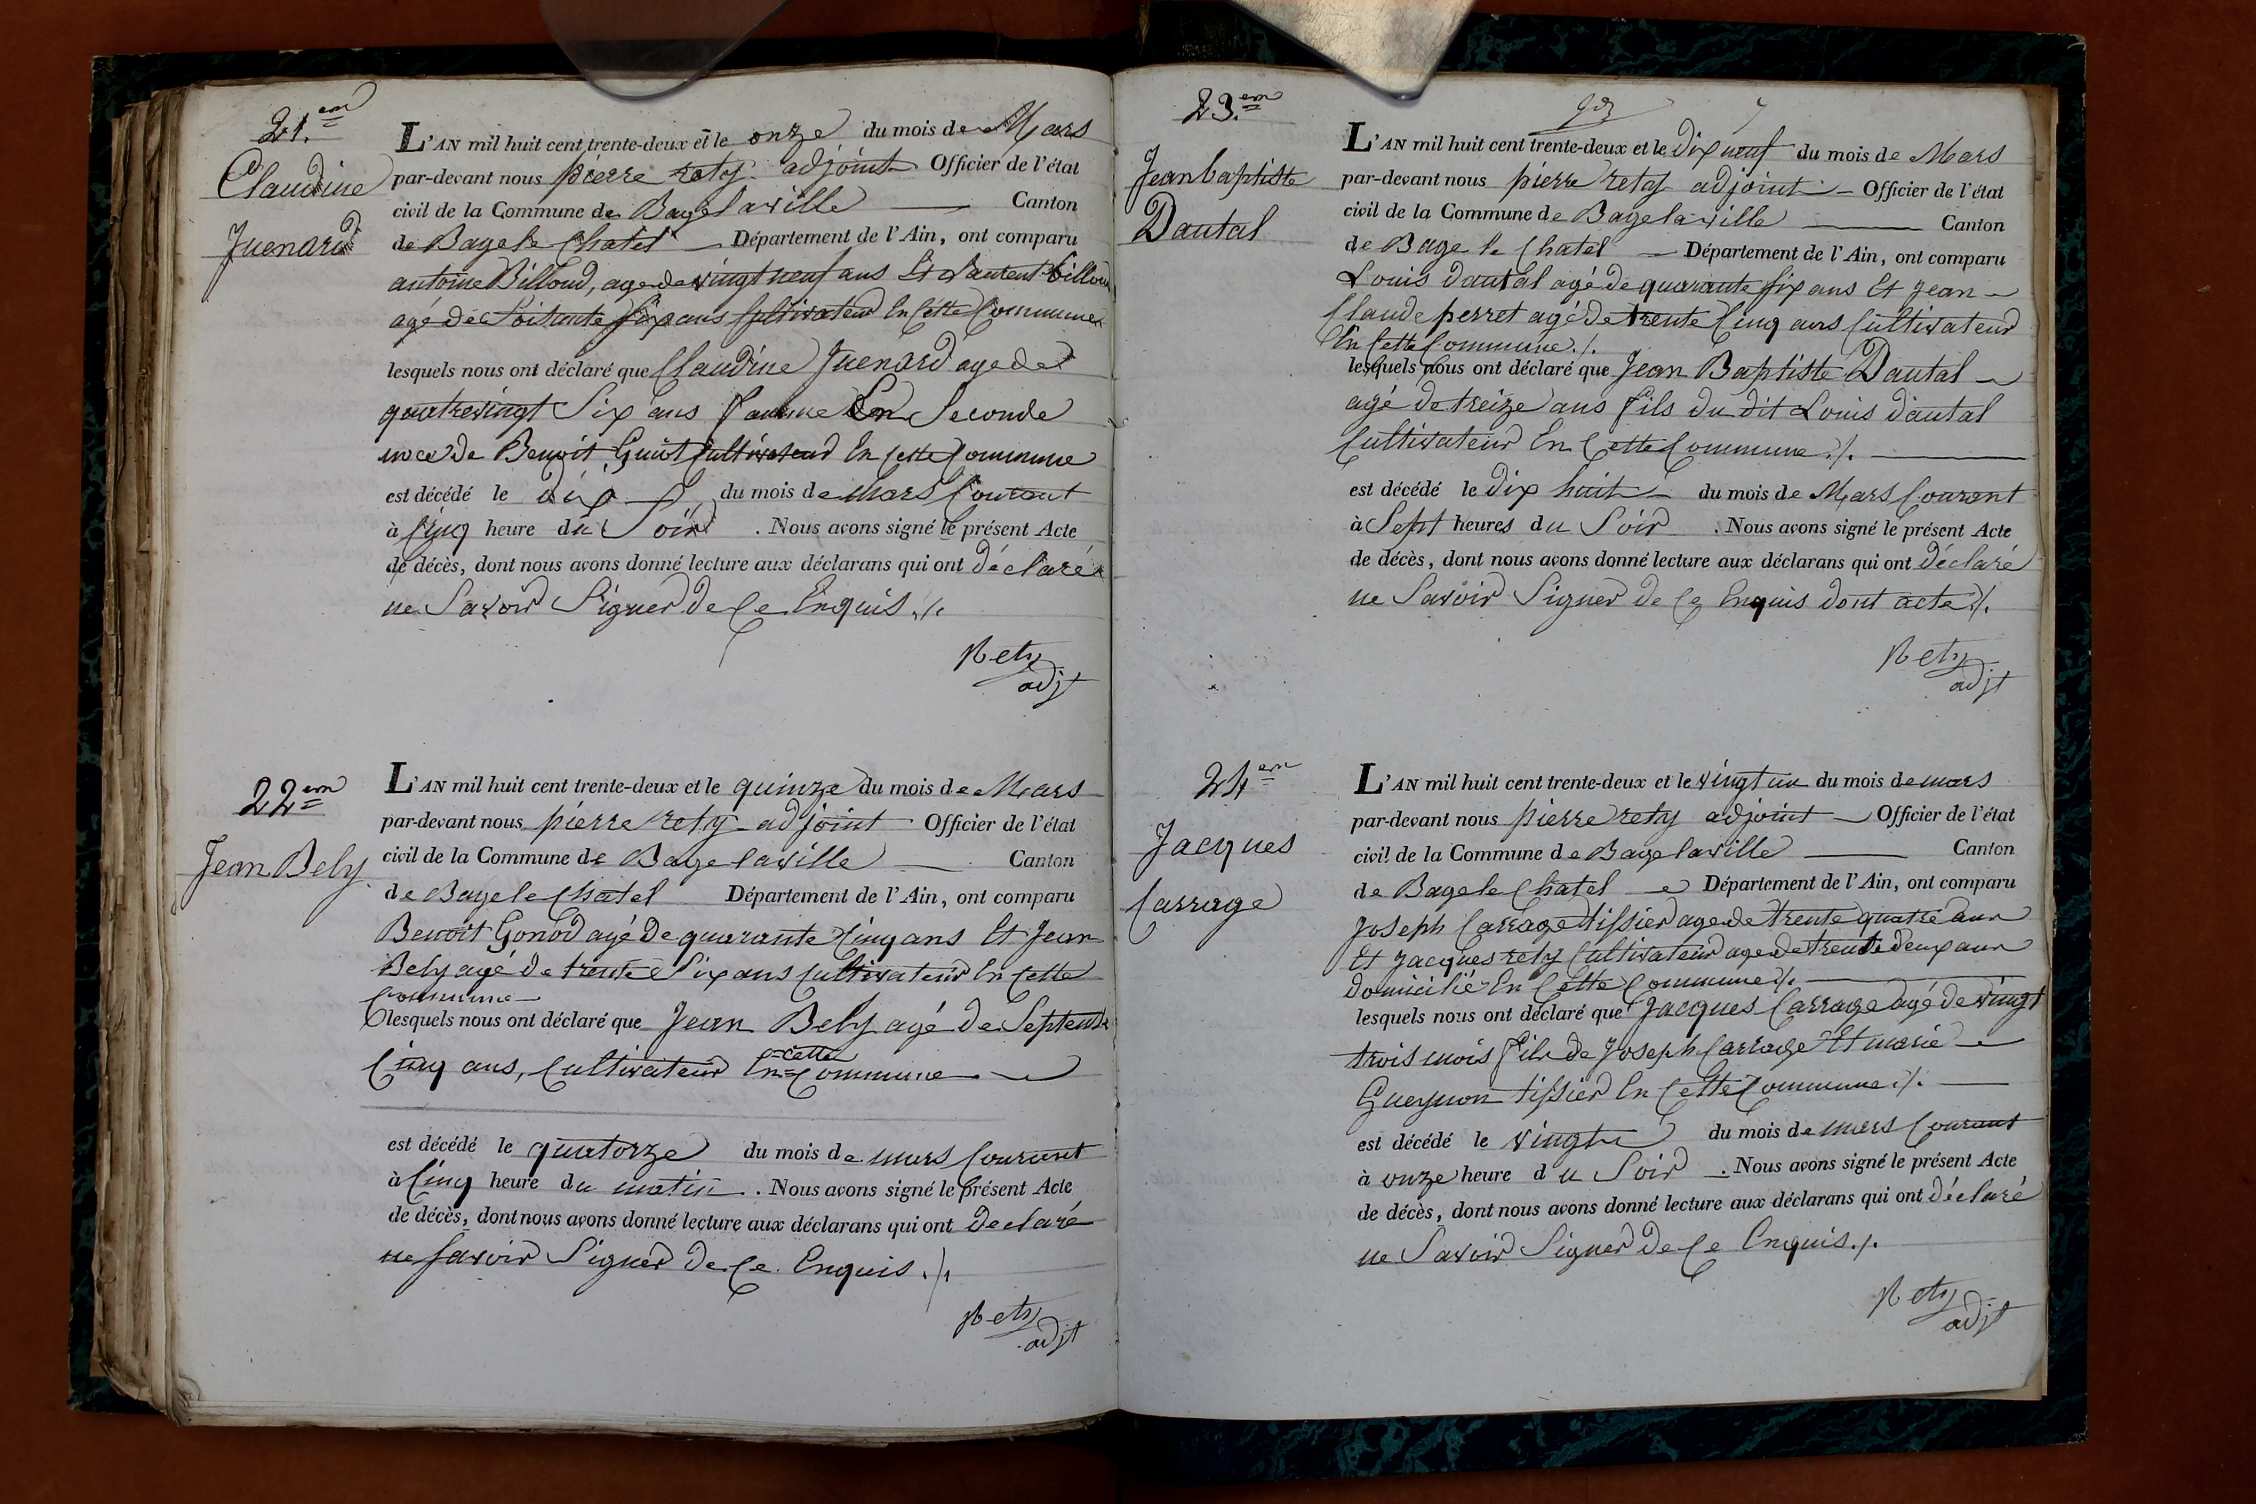 21.em
Claudine
Juenard
L'AN mil huit cent trente-deux et le onze du mois de Mars
par-devant nous pierre rety adjoint Officier de l'état
civil de la Commune de Bagelaville Canton
de Bage le Chatel Département de l'Ain, ont comparu
antoine Billoud, age de vingt neuf ans Et Laurent billoud
agé de Soisante Six ans Cultivateur En Cette Commune
lesquels nous ont déclaré que Claudine Juenard age de
quatrevingt Six ans famme En Seconde
noce de Benoit Guiot Cultivateur En Cette Commune
est décédé le dix du mois de Mars Courant
à Cinq heure du Soir . Nous avons signé le présent Acte
de décès, dont nous avons donné lecture aux déclarans qui ont déclaré
ne Savoir Signer de Ce Enquis ./.
Rety
adjt
22em
Jean Bely
L'AN mil huit cent trente-deux et le quinze du mois de Mars
par-devant nous pierre rety adjoint Officier de l'état
civil de la Commune de Bagelaville Canton
de Bage le Chatel Département de l'Ain, ont comparu
Benoit Gonod agé de quarante Cinq ans Et Jean
Bely agé de trente Six ans Cultivateur En Cette
Commune
lesquels nous ont déclaré que Jean Bely agé de Septente
Cinq ans, Cultivateur En = cette = Commune
est décédé le quatorze du mois de mars Courant
à Cinq heure du matin . Nous avons signé le présent Acte
de décès, dont nous avons donné lecture aux déclarans qui ont declaré
ne Savoir Signer de Ce Enquis ./.
Rety
adjt
23.em
Jean baptiste
Dautal
L'AN mil huit cent trente-deux et le Dix neuf du mois de Mars
par-devant nous pierre rety adjoint Officier de l'état
civil de la Commune de Bagelaville Canton
de Bage le Chatel Département de l'Ain, ont comparu
Louis Dautal agé de quarante Six ans Et Jean
Claude perret agé de trente Cinq ans Cultivateur
En Cette Commune ./.
lesquels nous ont déclaré que Jean Baptiste Dautal
agé de treize ans fils du dit Louis Dautal
Cultivateur En Cette Commune ./.
est décédé le dix huit du mois de Mars Courant
à Sept heures du Soir . Nous avons signé le présent Acte
de décès, dont nous avons donné lecture aux déclarans qui ont déclaré
ne Savoir Signer de Ce Enquis dont acte ./.
Rety
adjt
24em
Jacques
Carrage
L'AN mil huit cent trente-deux et le vingt un du mois de mars
par-devant nous pierre rety adjoint Officier de l'état
civil de la Commune de Bagelaville Canton
de Bage le Chatel Département de l'Ain, ont comparu
Joseph Carrage tissier age de trente quatre ans
Et Jacques rety Cultivateur age de trente deux ans
Domicilié En Cette Commune ./.
lesquels nous ont déclaré que Jacques Carrage agé de vingt
trois mois fils de Joseph Carrage Et marie
Gueynon tissier En Cette Commune ./.
est décédé le vingt du mois de mars Courant
à onze heure du Soir . Nous avons signé le présent Acte
de décès, dont nous avons donné lecture aux déclarans qui ont déclaré
ne Savoir Signer de Ce Enquis ./.
Rety
adjt